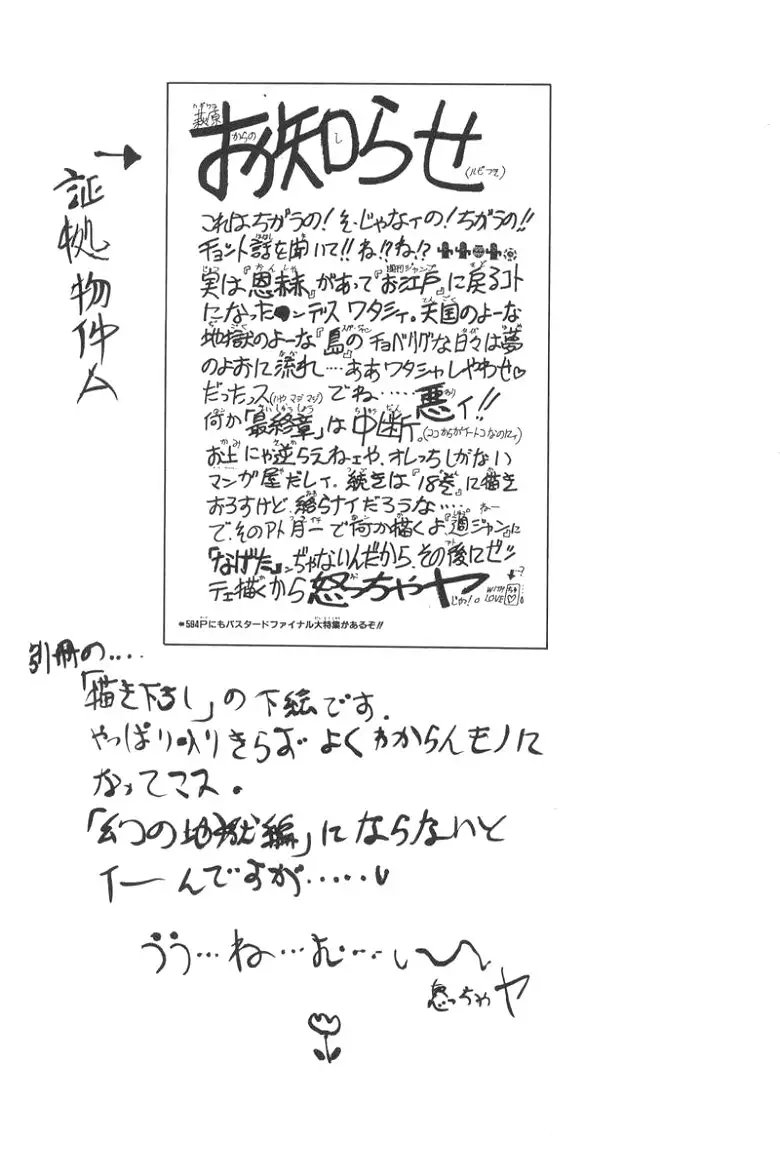 証拠物件A
萩原からのお知らせ
(ルビつき)
これはちがうの!そーじゃなイの!ちがうの!!
チョット話を聞いて!!ね!?ね!?
実は『恩赦』があって『お江戸』に戻るコト
になったンデス ワタシィ。天国のよーな
地獄のよーな『島』のチョベリグな日々は夢
のよおに流れ……ああワタシャしやわせ♡
だったっス(いや マジ マジ)でね……悪ィ!!
何か「最終章」は中断。(ココからがイートコなのにィ)
お上にゃ逆らえねェや、オレっちしがない
マンガ屋だしィ、続きは『18巻』に描き
おろすけど、終らナイだろうな……
で、そのアト月一で何か描くよ『週ジャン』に
『なげた』んぢゃないんだから、その後にゼッ
テェ描くから怒っちゃヤ
じゃっ!。 WITH LOVE
※594Pにもバスタードファイナル大特集があるぞ!!
別冊の....
「描き下ろし」の下絵です.
やっぱり入りきらず よくわからんモノに
なってマス。
「幻の地獄編」にならないと
イーんですが.....
ゔゔ…ね…む…い〜
怒っちゃヤ